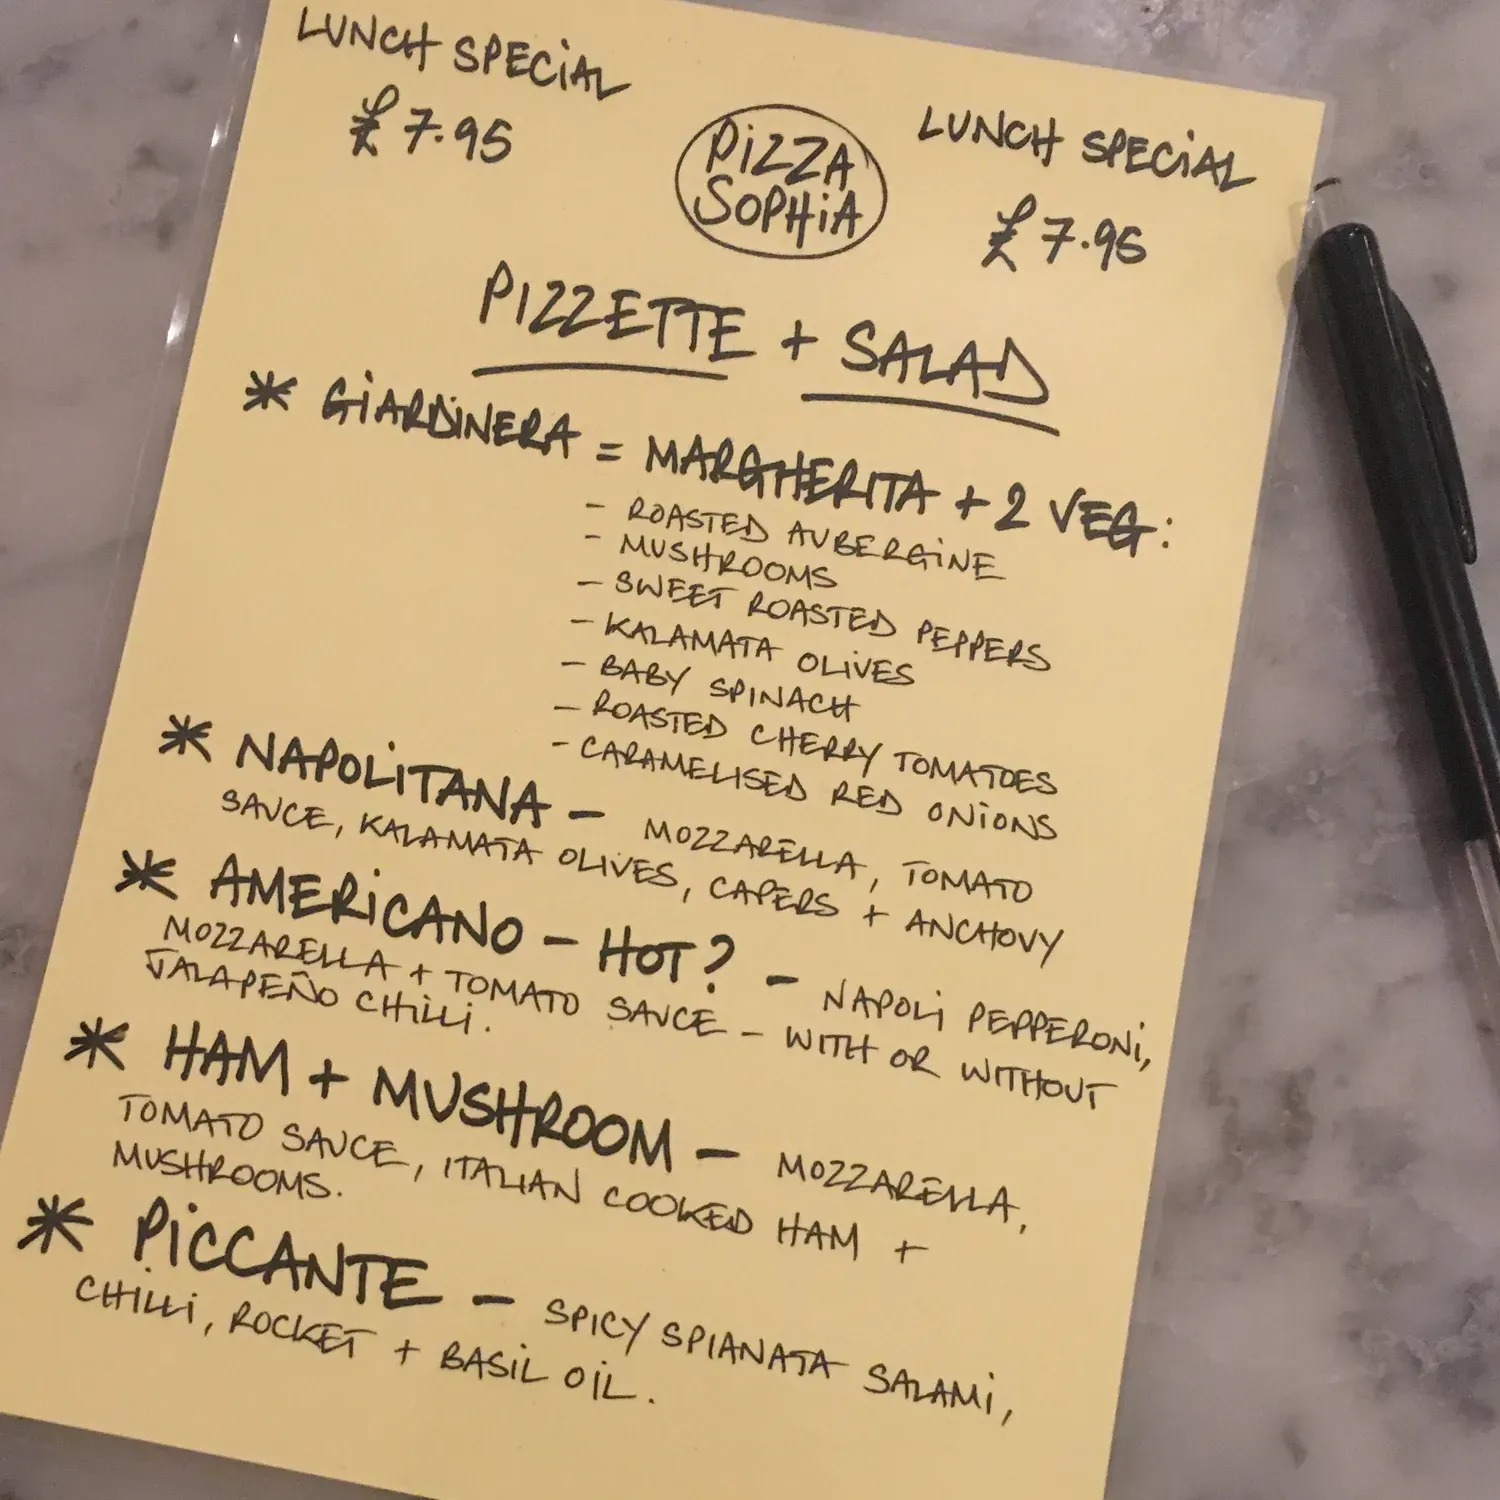 LUNCH SPECIAL
£7.95
PIZZA
SOPHIA
LUNCH SPECIAL
£7.95
PIZZETTE + SALAD
* GIARDINERA = MARGHERITA + 2 VEG:
- ROASTED AUBERGINE
- MUSHROOMS
- SWEET ROASTED PEPPERS
- KALAMATA OLIVES
- BABY SPINACH
- ROASTED CHERRY TOMATOES
- CARAMELISED RED ONIONS
* NAPOLITANA - MOZZARELLA, TOMATO
SAUCE, KALAMATA OLIVES, CAPERS + ANCHOVY
* AMERICANO - HOT? - NAPOLI PEPPERONI,
MOZZARELLA + TOMATO SAUCE - WITH OR WITHOUT
JALAPEÑO CHILLI.
* HAM + MUSHROOM - MOZZARELLA,
TOMATO SAUCE, ITALIAN COOKED HAM +
MUSHROOMS.
* PICCANTE - SPICY SPIANATA SALAMI,
CHILLI, ROCKET + BASIL OIL.